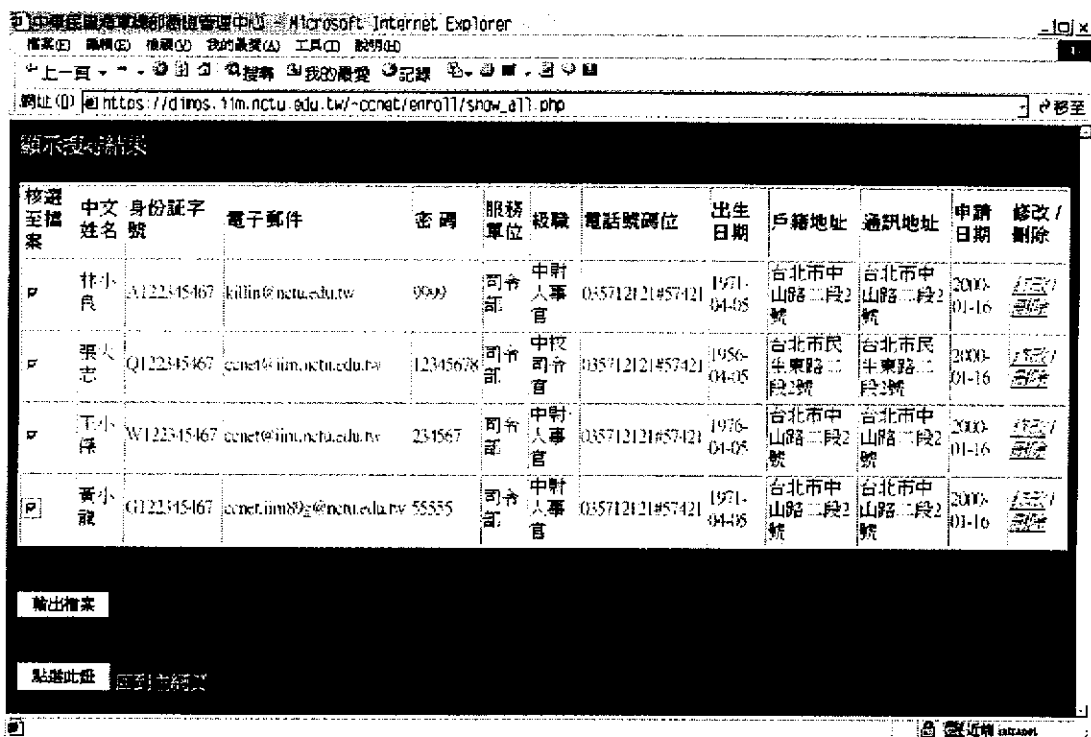 中華民國海軍總部憑證管理中心 - Microsoft Internet Explorer
檔案(F) 編輯(E) 檢視(V) 我的最愛(A) 工具(T) 說明(H)
上一頁 搜尋 我的最愛 記錄
網址(D) https://dimos.iim.nctu.edu.tw/~ccnet/enroll/show_all.php 移至
顯示搜尋結果
核選至檔案 中文姓名 身份証字號 電子郵件 密碼 服務單位 級職 電話號碼位 出生日期 戶籍地址 通訊地址 申請日期 修改 / 刪除
林小良 A122345467 killin@nctu.edu.tw 9999 司令部 中尉人事官 035712121#57421 1971-04-05 台北市中山路二段2號 台北市中山路二段2號 2000-01-16 修改 / 刪除
張大志 Q122345467 ccnet@iim.nctu.edu.tw 12345678 司令部 中校司令官 035712121#57421 1956-04-05 台北市民生東路二段2號 台北市民生東路二段2號 2000-01-16 修改 / 刪除
王小傑 W122345467 ccnet@iim.nctu.edu.tw 234567 司令部 中尉人事官 035712121#57421 1976-04-05 台北市中山路二段2號 台北市中山路二段2號 2000-01-16 修改 / 刪除
黃小龍 G122345467 ccnet.iim89g@nctu.edu.tw 55555 司令部 中尉人事官 035712121#57421 1971-04-05 台北市中山路二段2號 台北市中山路二段2號 2000-01-16 修改 / 刪除
輸出檔案
點選此鈕 回到主網頁
近端 intranet